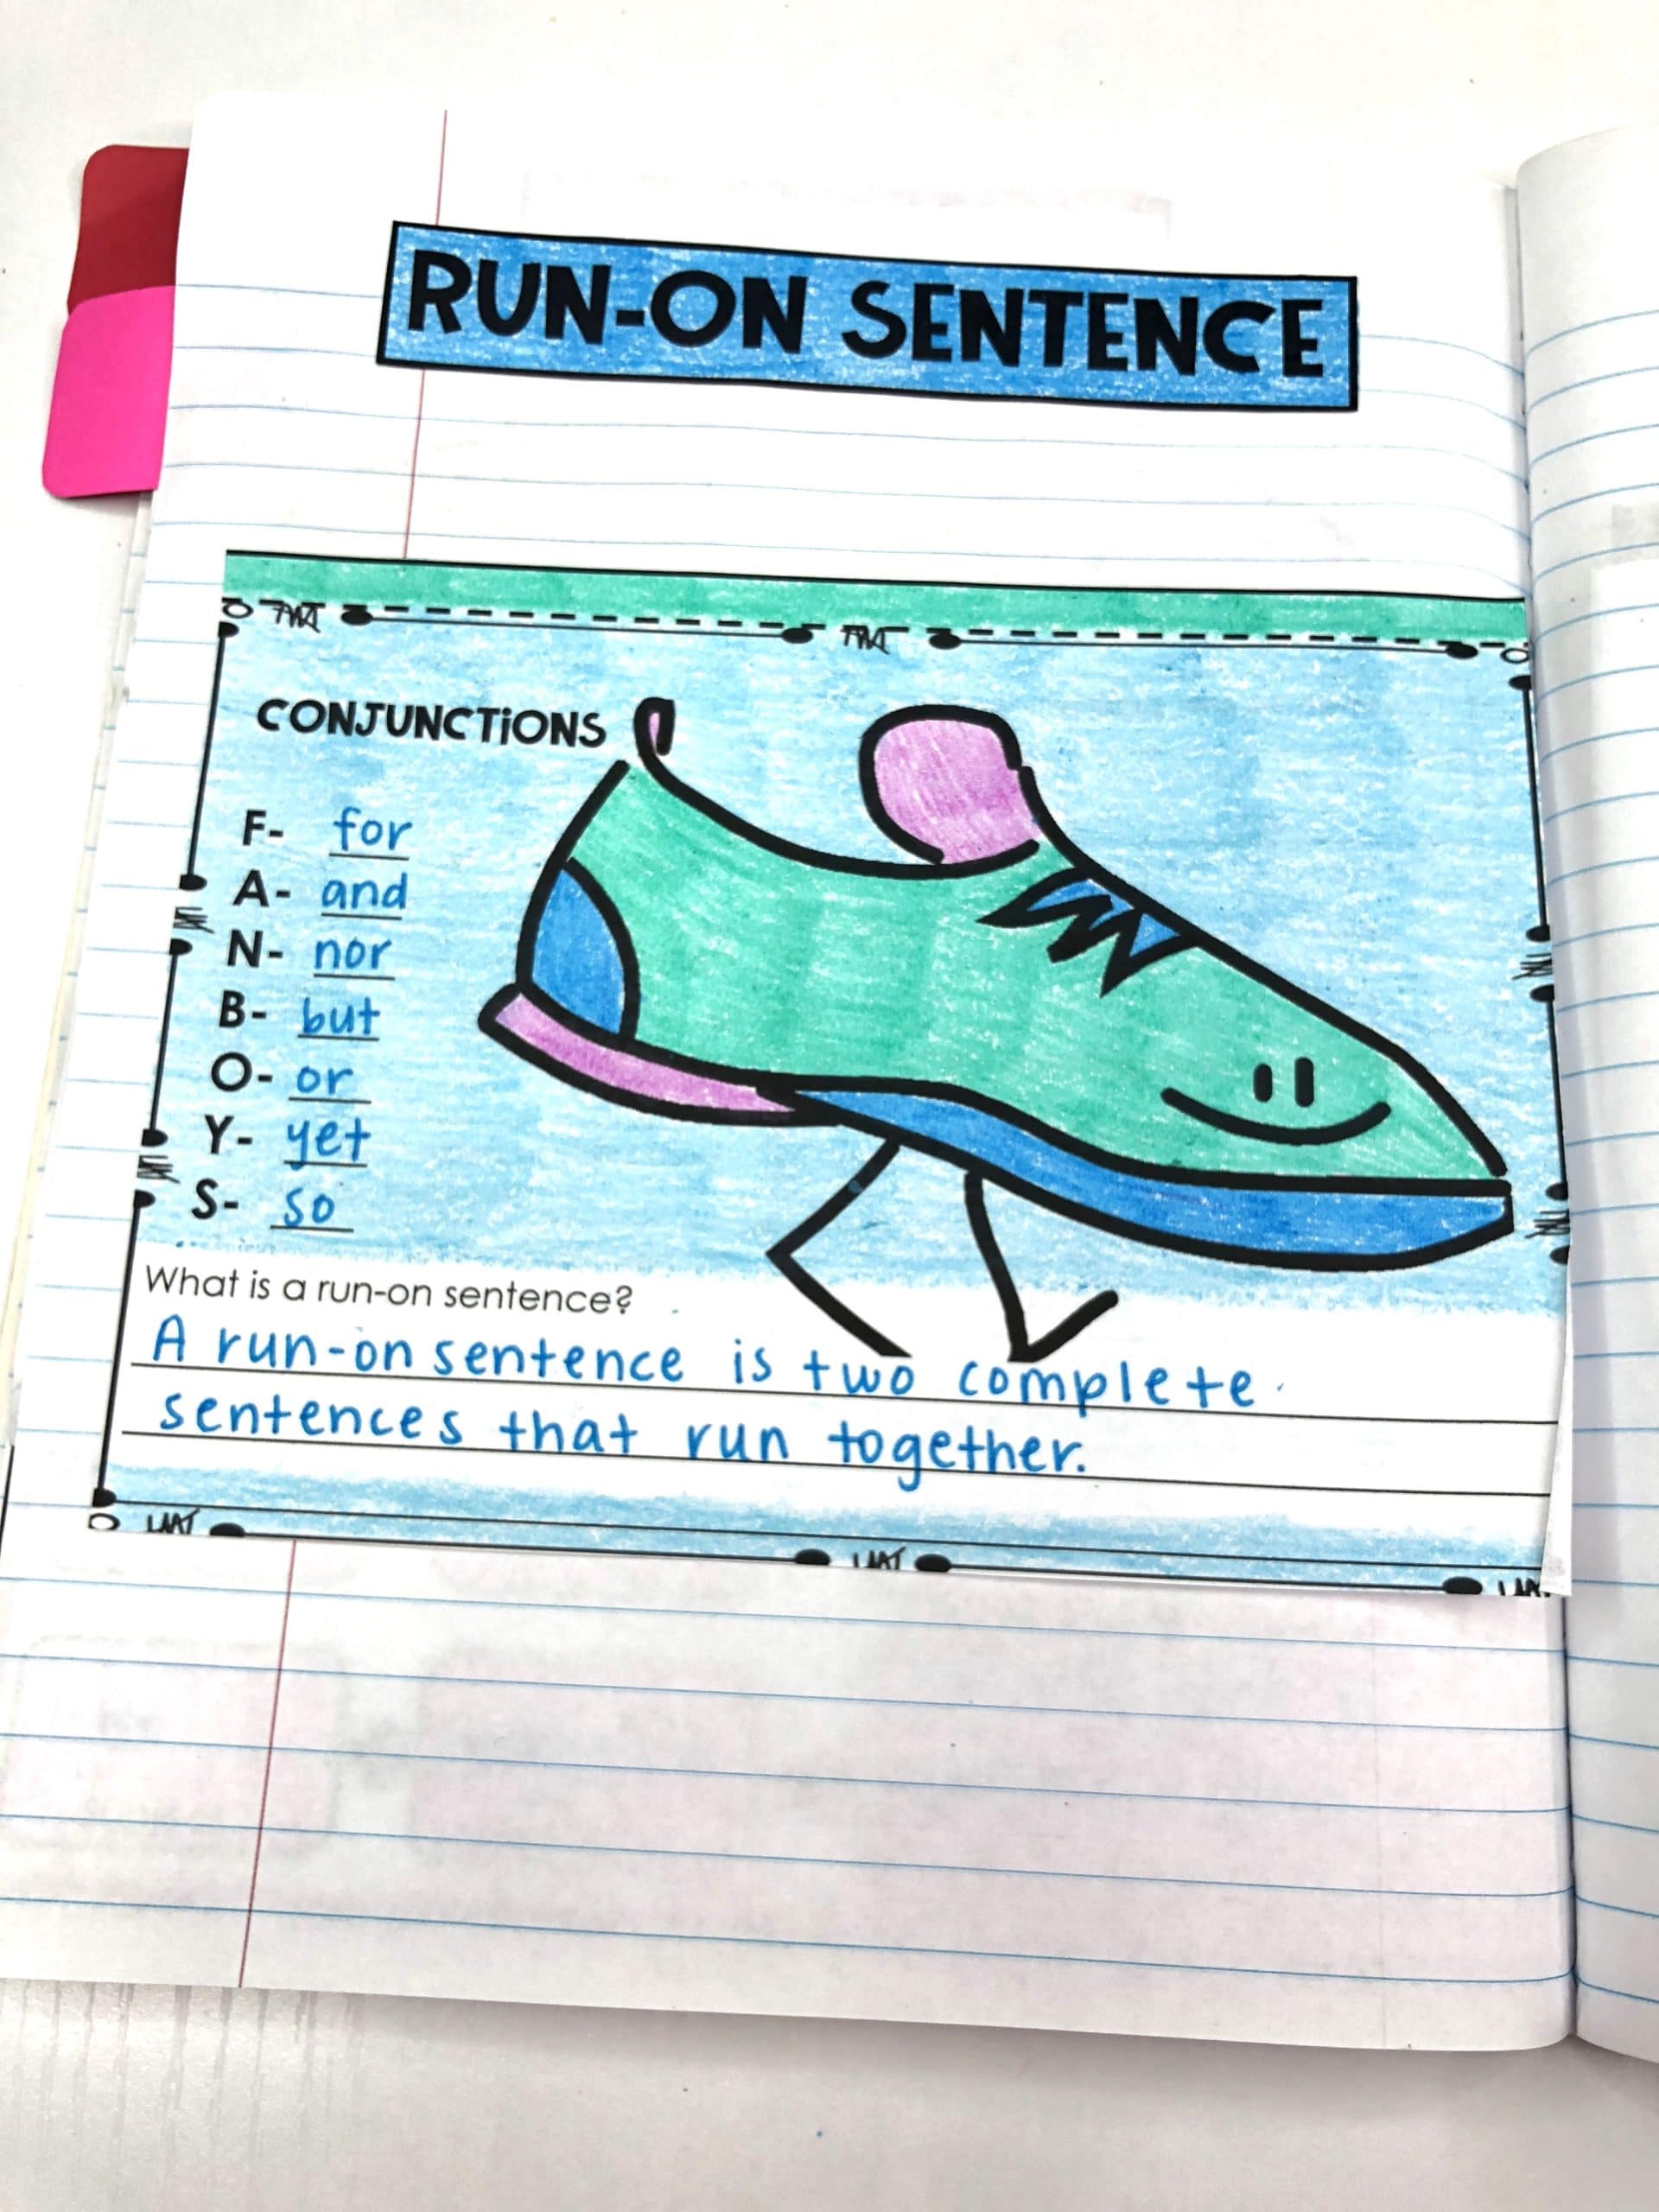 RUN-ON SENTENCE
CONJUNCTIONS
F- for
A- and
N- nor
B- but
O- or
Y- yet
S- so
What is a run-on sentence?
A run-on sentence is two complete
sentences that run together.